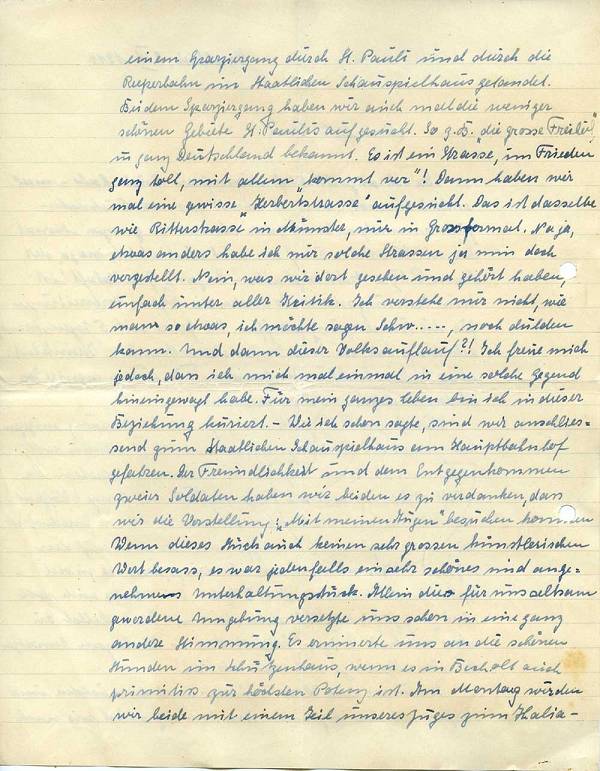 einem Spaziergang durch St. Pauli und durch die
Reeperbahn im Staatlichen Schauspielhaus gelandet.
Bei dem Spaziergang haben wir auch mal die weniger
schönen Gebiete St. Paulis aufgesucht. So z.B. "die grosse Freiheit"
in ganz Deutschland bekannt. Es ist ein Strasse, im Frieden
ganz toll, mit allem "kommt vor"! Dann haben wir
mal eine gewisse "Herbertstrasse" aufgesucht. Das ist dasselbe
wie Ritterstrasse in Münster, nur in Grossformat. Na ja,
etwas anders habe ich mir solche Strassen ja nun doch
vorgestellt. Nein, was wir dort gesehen und gehört haben,
einfach unter aller Kritik. Ich verstehe nur nicht, wie
man so etwas, ich möchte sagen Schw....., noch dulden
kann. Und dann dieser Volksauflauf?! Ich freue mich
jedoch, dass ich mich mal einmal in eine solche Gegend
hineingewagt habe. Für mein ganzes Leben bin ich in dieser
Beziehung kuriert. - Wie ich schon sagte, sind wir anschlies-
send zum Staatlichen Schauspielhaus am Hauptbahnhof
gefahren. Der Freundlichkeit und dem Entgegenkommen
zweier Soldaten haben wir beiden es zu verdanken, dass
wir die Vorstellung: "Mit meinen Augen" besuchen konnten
Wenn dieses Stück auch keinen sehr grossen künstlerischen
Wert besass, es war jedenfalls ein sehr schönes und ange=
nehmes Unterhaltungsstück. Allein die für uns seltsam
gewordene Umgebung versetzte uns schon in eine ganz
andere Stimmung. Es erinnerte uns an die schönen
Stunden im Schützenhaus, wenn es in Bocholt auch
primitiv zur höchsten Potenz ist. Am Montag würden
wir beide mit einem Teil unseres Zuges zum Thalia-